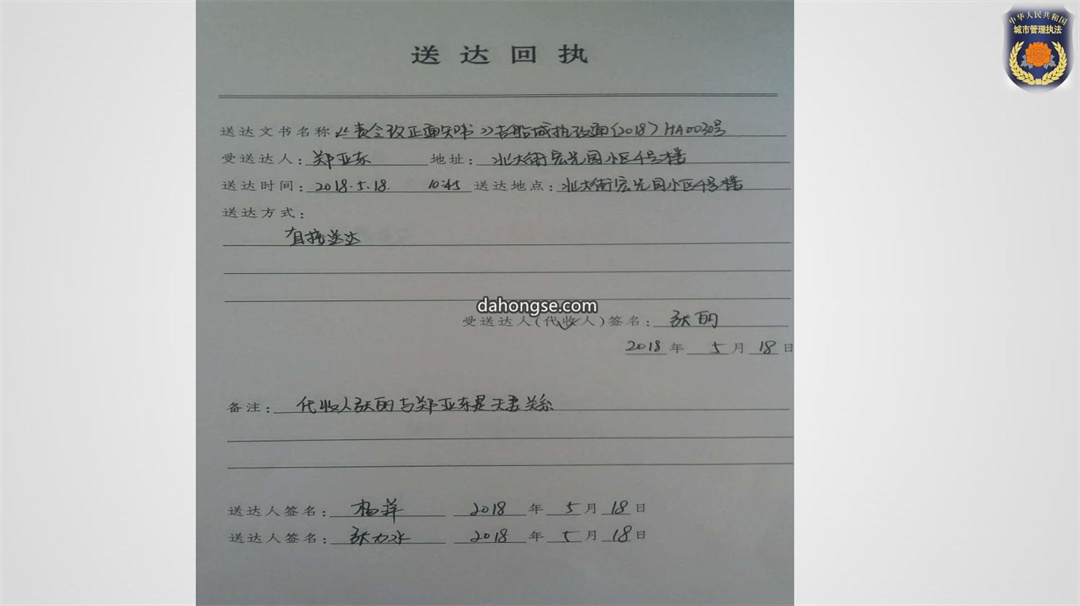 中华人民共和国
城市管理执法
送达回执
送达文书名称:《责令改正通知书》吉船城执改通(2018)HA0030号
受送达人:郑亚东 地址:北大街宏光园小区4号楼
送达时间:2018.5.18. 10:45 送达地点:北大街宏光园小区4号楼
送达方式:
直接送达
dahongse.com
受送达人(代收人)签名:
2018年5月18日
备注:代收人 与郑亚东是夫妻关系
送达人签名:杨萍 2018年5月18日
送达人签名: 2018年5月18日